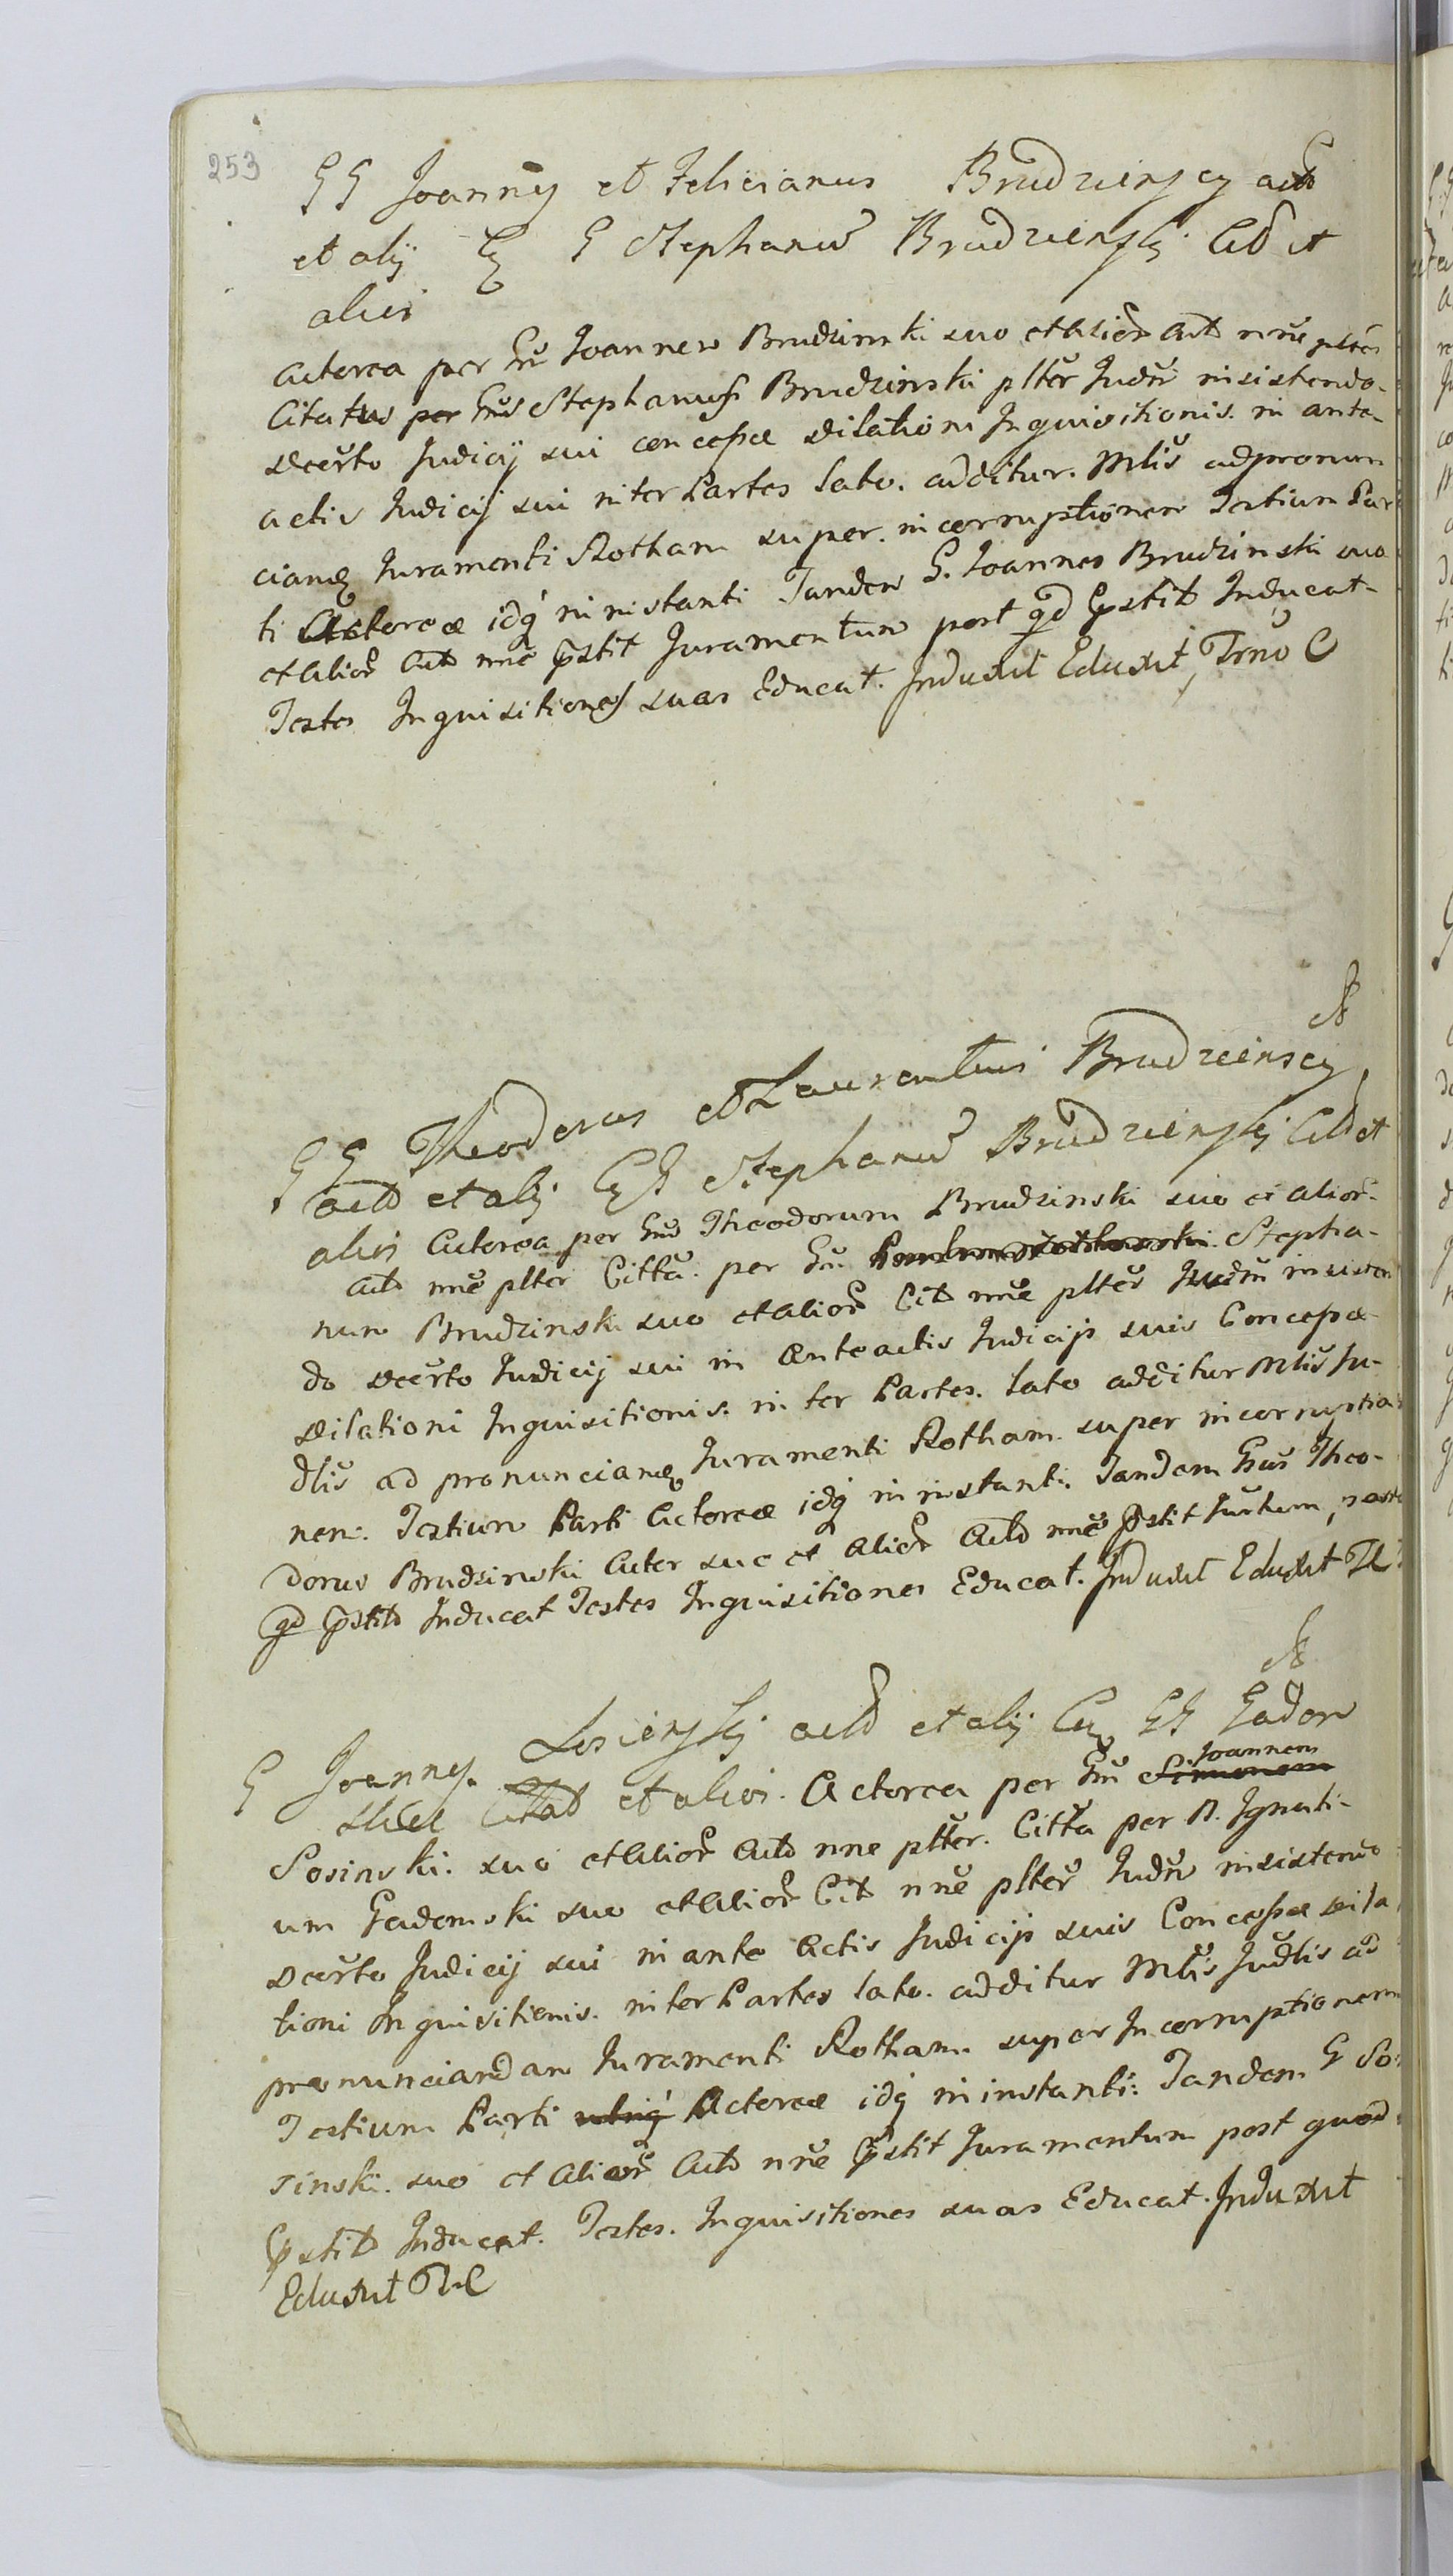 253
GG Joannes et Felicianus Brudzinscy act
et alij Cŋ G Stephanus Brudzinskj Cit et
alios
Actorea per Gñ Joannem Brudzinski suo et alior Act nne plter
Citatus per Gñus Stephanus Brudzinski plter Judm insistendo
decerto Judicij sui concepsæ dilationi Inquisitionis in ante
actis Judicij sui inter Partes lato. additur. Mlis ad pronun
ciand Juramenti Rotham super. incorruptionem Testium Par
ti Actoreæ idq in instanti Tandem G. Joannes Brudzinski suo
et alior Act nne pstit Juramentum post qd pstit Inducat
Testes Inquisitiones suas Educat. Induxit Eduxit, Trno C
GG Theodorus et Laurentius Brudzinscy
act et alij Cŋ G Stephanus Brudzinskj Cit et
alios Actorea per Gñ Theodorum Brudzinski suo et alior
Act nne plter Citta. per Gñ Stepha-
num Brudzinski suo et alior Cit nne plter Judm insisten
do decerto Judicij sui in anteactis Judicijs suis Concepsæ
dilationi Inquisitionis. inter Partes. lato additur Mlis Ju-
dlis ad pronunciand Juramenti Rotham super incorruptio
nem. Testium Parti Actoreæ idq in instanti. Tandem Gñus Theo-
dorus Brudzinski Actor suo et alior Act nne pstit Jurtum, post
qd pstit Inducat Testes Inquisitiones Educat. Induxit Eduxit T C
G Joannes Losienskj act et alij Cŋ GG Gadom
skie Citat et alios. Actorea per Gñ Simonem Joannem
Sosinski. suo et alior Act nne plter. Citta per N. Ignati-
um Gadomski suo et alior Cit nne plter Judm insistendo
decerto Judicij sui in ante actis Judicijs suis Concepsæ dila
tioni Inquisitionis. inter Partes lato. additur Mlis Judlis ad
pronunciandam Juramenti Rotham super Incorruptionem
Testium Parti utriq Actoreæ idq in instanti. Tandem G So
sinski. suo et alior Act nne pstit Juramentum post quod
pstit Inducat. Testes. Inquisitiones suas Educat. Induxit
Eduxit T C